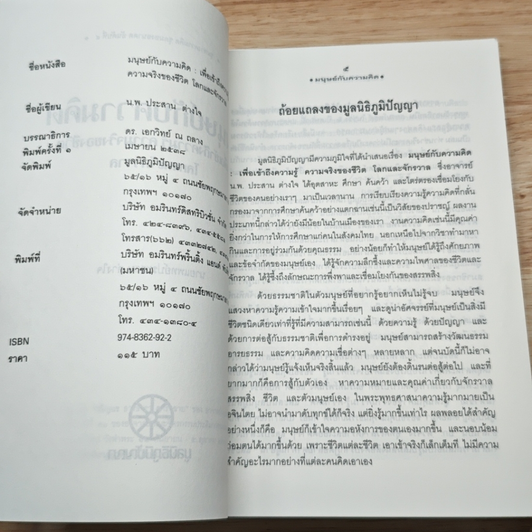 ชื่อหนังสือ
มนุษย์กับความคิด : เพื่อเข้าถึงความรู้
ความจริงของชีวิต โลกและจักรวาล
ชื่อผู้เขียน
น.พ. ประสาน ต่างใจ
บรรณาธิการ
ดร. เอกวิทย์ ณ ถลาง
พิมพ์ครั้งที่ ๑
เมษายน ๒๕๓๘
จัดพิมพ์
มูลนิธิภูมิปัญญา
๖๕/๑๖ หมู่ ๔ ถนนชัยพฤกษ์
กรุงเทพฯ ๑๐๑๗๐
จัดจำหน่าย
บริษัท อมรินทร์ดิสทริบิวชั่น จำกัด
โทร.
โทรสาร(๖๖๒)
พิมพ์ที่
บริษัท อมรินทร์พริ้นติ้ง แอนด์
(มหาชน)
๖๕/๑๖ หมู่ ๔ ถนนชัยพฤกษ์
กรุงเทพฯ ๑๐๑๗๐
โทร. ๔๓๔-๑๑๘๐-๔
ISBN
974-8362-92-2
ราคา
๑๑๕ บาท
๕
• มนุษย์กับความคิด •
ถ้อยแถลงของมูลนิธิภูมิปัญญา
มูลนิธิภูมิปัญญามีความภูมิใจที่ได้นำเสนอเรื่อง มนุษย์กับความคิด
: เพื่อเข้าถึงความรู้ ความจริงของชีวิต โลกและจักรวาล
น.พ. ประสาน ต่างใจ ได้อุตสาหะ ศึกษา ค้นคว้า และไตร่ตรองเชื่อมโยงกับ
ชีวิตของคนอย่างเรา ๆ มาเป็นเวลานาน การเรียบเรียงความรู้ความคิดที่กลั่น
กรองมาจากการศึกษาค้นคว้าอย่างแตกฉานเช่นนี้เป็นวิสัยของปราชญ์ ผลงาน
ประเภทนี้กล่าวได้ว่ายังมีน้อยในบ้านเมืองของเรา งานความคิดเช่นนี้มีคุณค่า
ยิ่งกว่าในการให้การศึกษาแก่คนในสังคมไทย นอกเหนือไปจากวิชาทำมาหา
กินและการอยู่ร่วมกันด้วยคุณธรรม อย่างน้อยก็ทำให้มนุษย์ได้รู้ถึงศักยภาพ
และข้อจำกัดของมนุษย์เอง ได้รู้จักความลึกซึ้งและความไพศาลของชีวิตและ
จักรวาล ได้รู้ซึ้งถึงลักษณะการพึ่งพาและเชื่อมโยงกันของสรรพสิ่ง
ด้วยธรรมชาติในตัวมนุษย์ที่อยากรู้อยากเห็นไม่รู้จบ มนุษย์จึง
แสวงหาความรู้ความเข้าใจมากขึ้นเรื่อยๆ และดูน่าอัศจรรย์ที่มนุษย์เป็นสิ่งมี
ชีวิตชนิดเดียวเท่าที่รู้ที่มีความสามารถเช่นนี้ ด้วยความรู้ ด้วยปัญญา และ
ด้วยการต่อสู้กับธรรมชาติเพื่อการดำรงอยู่ มนุษย์สามารถสร้างวัฒนธรรม
อารยธรรม และความคิดความเชื่อต่างๆ หลายหลาก แต่จนบัดนี้ก็ไม่อาจ
กล่าวได้ว่ามนุษย์รู้แจ้งเห็นจริงสิ้นแล้ว มนุษย์ยังต้องดิ้นรนต่อสู้ต่อไป และที่
ยากมากก็คือการสู้กับตัวเอง หาความหมายและคุณค่าเกี่ยวกับจักรวาล
สรรพสิ่ง ชีวิต และตัวมนุษย์เอง ในพระพุทธศาสนาความรู้มากมายเป็น
อจินไตย ไม่อาจนำมาดับทุกข์ได้ก็จริง แต่ยิ่งรู้มากขึ้นเท่าไร ผลพลอยได้สำคัญ
อย่างหนึ่งก็คือ มนุษย์ก็เข้าใจความอหังการของตนเองมากขึ้น และนอบน้อม
ถ่อมตนได้มากขึ้นด้วย เพราะชีวิตแต่ละชีวิต เอาเข้าจริงก็เล็กเต็มที ไม่มีความ
สำคัญอะไรมากอย่างที่แต่ละคนคิดเอาเอง